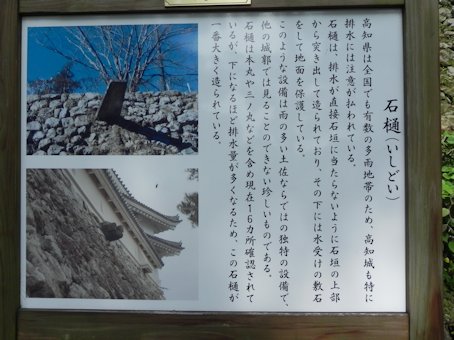 石樋(いしどい)
高知県は全国でも有数の多雨地帯のため、高知城も特に
排水には注意が払われている。
石樋は、排水が直接石垣に当たらないように石垣の上部
から突き出して造られており、その下には水受けの敷石
をして地面を保護している。
このような設備は雨の多い土佐ならではの独特の設備で、
他の城郭では見ることのできない珍しいものである。
石樋は本丸や三ノ丸などを含め現在16カ所確認されて
いるが、下になるほど排水量が多くなるため、この石樋が
一番大きく造られている。